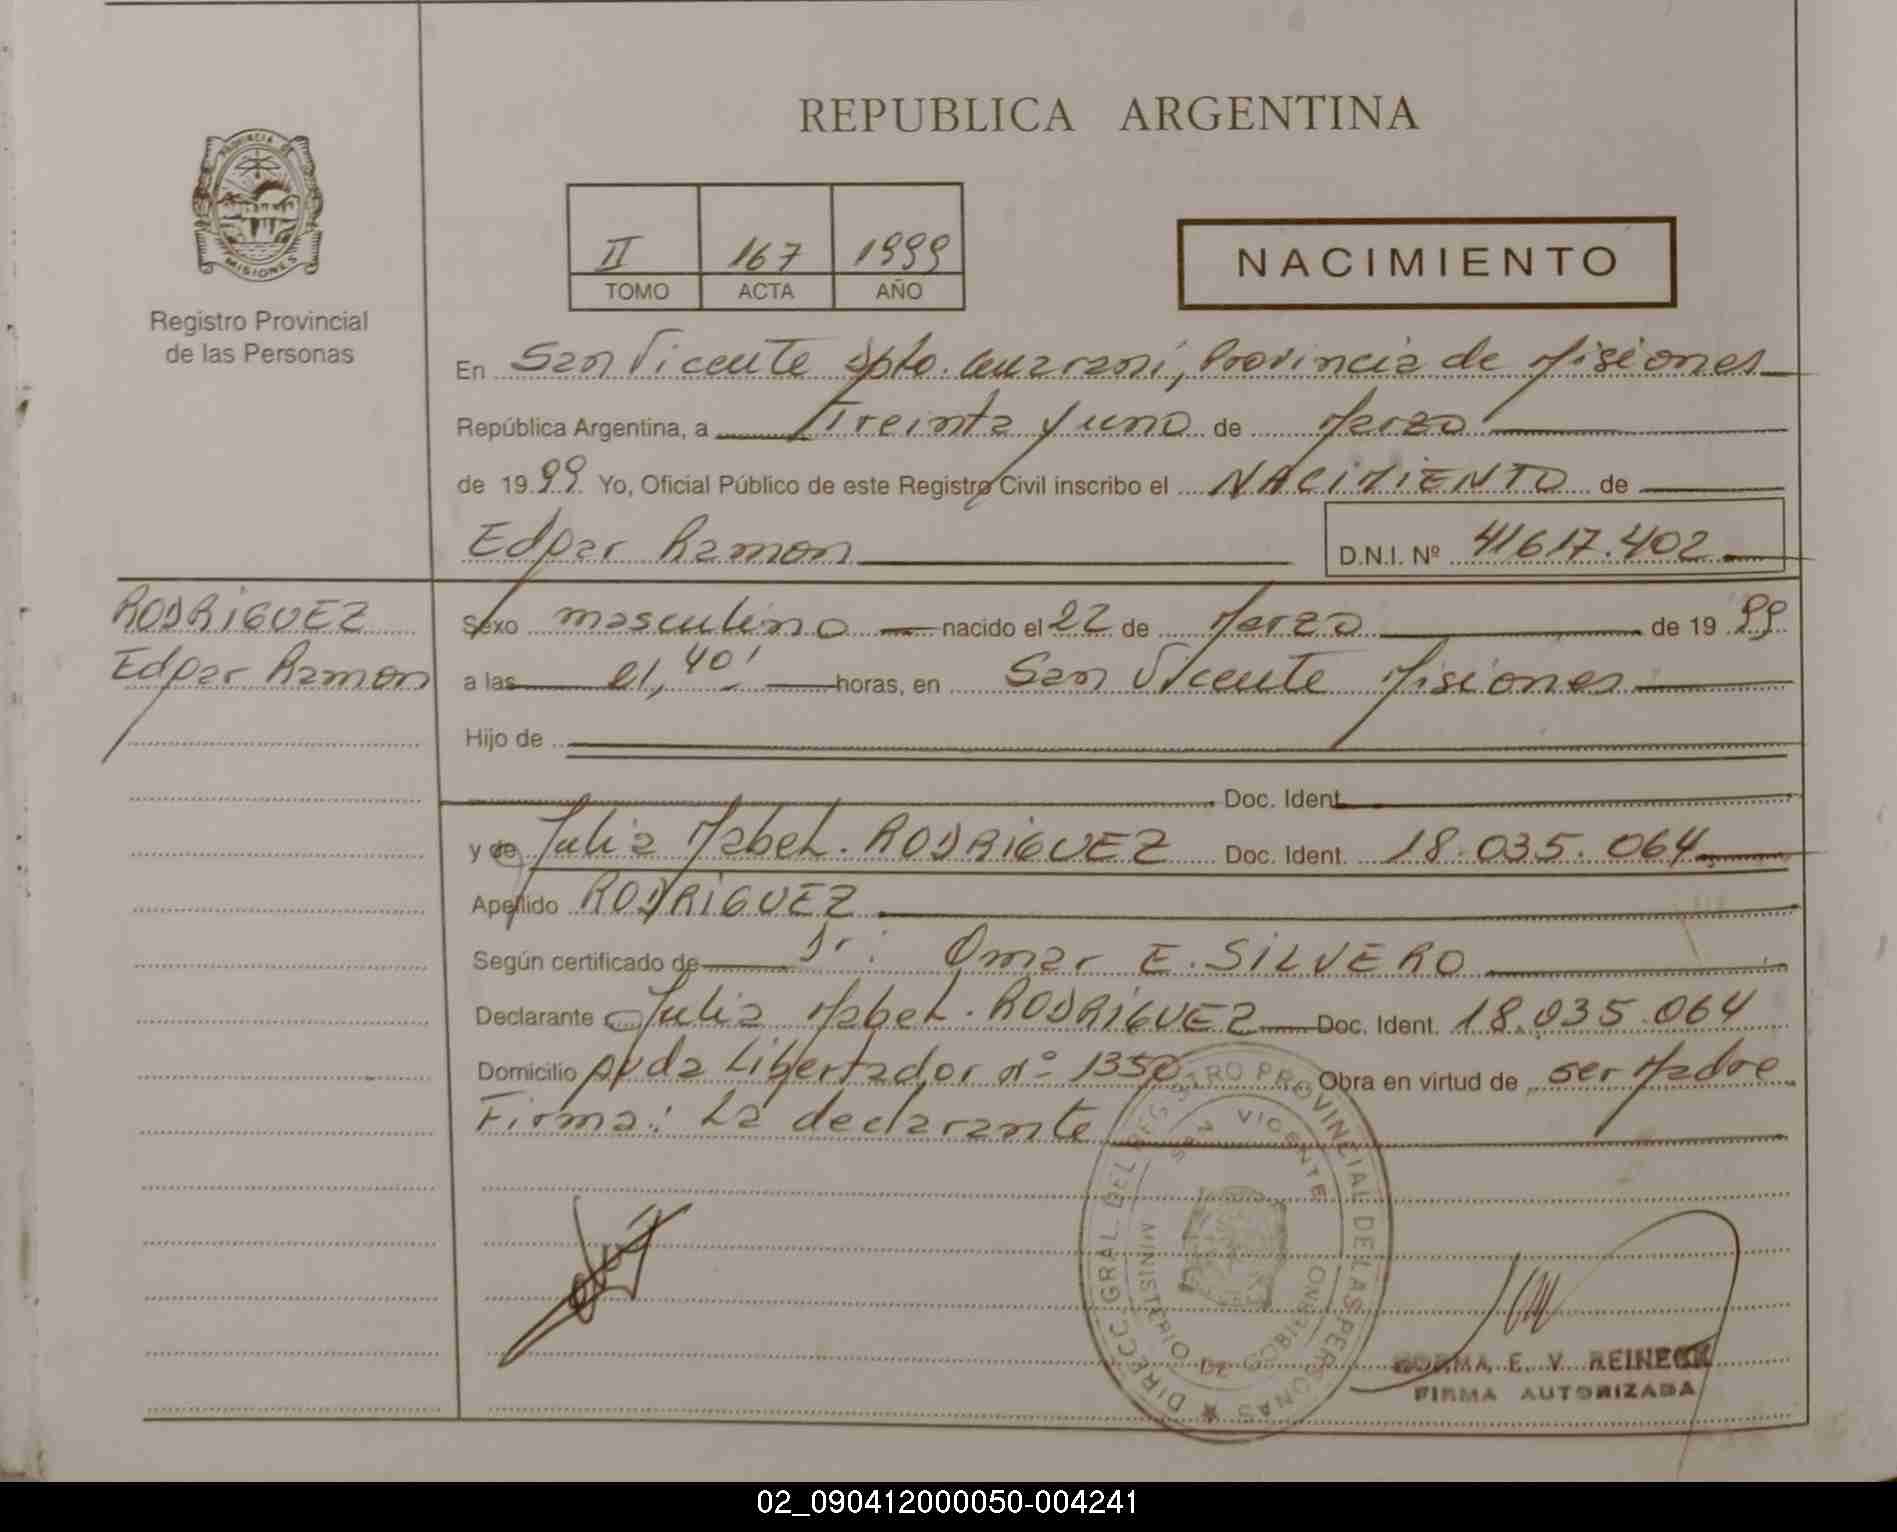 REPUBLICA ARGENTINA
PROVINCIA DE
MISIONES
Registro Provincial
de las Personas
II 167 1999
TOMO ACTA AÑO
NACIMIENTO
En San Vicente Dpto. Guarani, Provincia de Misiones
República Argentina, a Treinta y uno de Marzo
de 1999 Yo, Oficial Público de este Registro Civil inscribo el NACIMIENTO de
Edgar Ramon D.N.I. Nº 41617.402
RODRIGUEZ
Edgar Ramon
Sexo masculino nacido el 22 de Marzo de 1999
a las 21,40' horas, en San Vicente Misiones
Hijo de
Doc. Ident.
y de Julia Mabel. RODRIGUEZ Doc. Ident. 18.035.064
Apellido RODRIGUEZ
Según certificado de Dr. Omar E. SILVERO
Declarante Julia Mabel. RODRIGUEZ Doc. Ident. 18.035.064
Domicilio Avda Libertador nº 1350 Obra en virtud de ser Madre
Firma: La declarante
DIRECC. GRAL. DEL REGISTRO PROVINCIAL DE LAS PERSONAS
SAN VICENTE
MINISTERIO DE GOBIERNO
NORMA E. V. REINECK
FIRMA AUTORIZADA
02_090412000050-004241